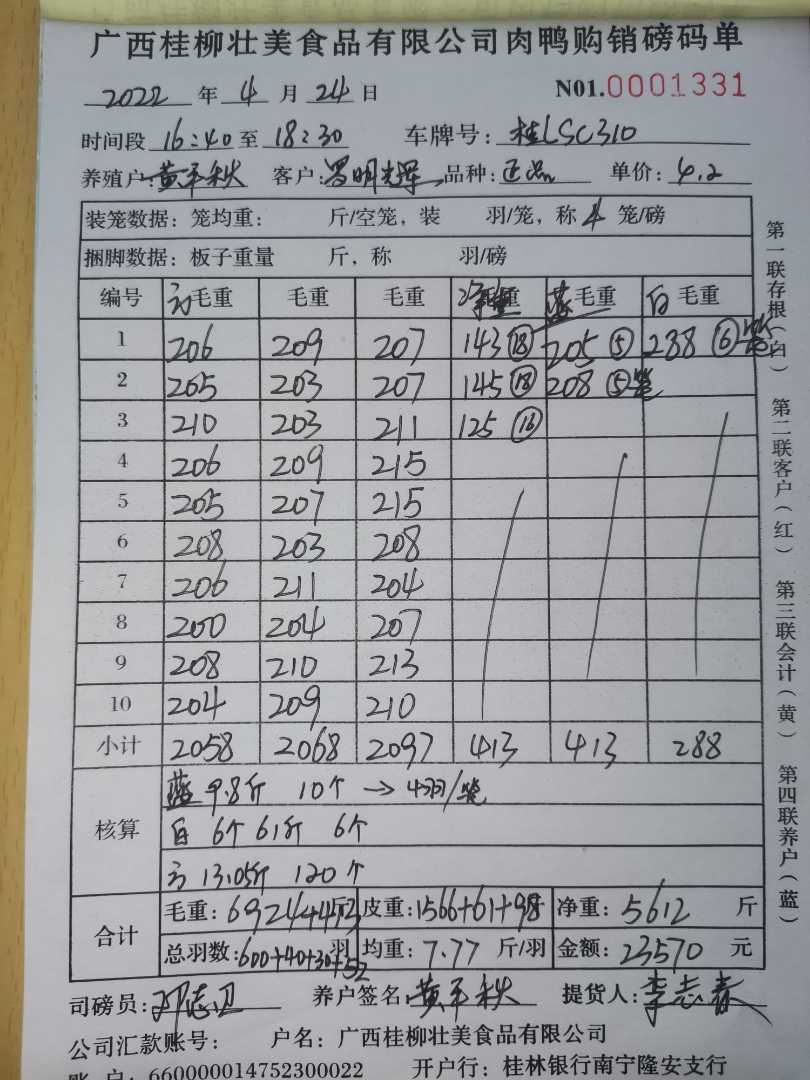 广西桂柳壮美食品有限公司肉鸭购销磅码单
2022 年 4 月 24 日 N01.0001331
时间段 16:40 至 18:30 车牌号: 桂LSC310
养殖户: 黄平秋 客户: 罗明光辉 品种: 正品 单价: 4.2
装笼数据: 笼均重: 斤/空笼, 装 羽/笼, 称 4 笼/磅
捆脚数据: 板子重量 斤, 称 羽/磅
编号 方毛重 毛重 毛重 净重 蓝毛重 白毛重
1 206 209 207 143 ⑱ 205 ⑤ 288 ⑥笼
2 205 203 207 145 ⑱ 208 ⑤笼
3 210 203 211 125 ⑯
4 206 209 215
5 205 207 215
6 208 203 208
7 206 211 204
8 200 204 207
9 208 210 213
10 204 209 210
小计 2058 2068 2097 413 413 288
核算 蓝 9.8斤 10个 → 4羽/笼
白 6个 61斤 6个
方 13.05斤 120个
合计 毛重: 6924+413斤 皮重: 1566+61+98 净重: 5612 斤
总羽数: 600+40+30+52 羽 均重: 7.77 斤/羽 金额: 23570 元
司磅员: 邓志卫 养户签名: 黄平秋 提货人: 李志春
公司汇款账号: 户名: 广西桂柳壮美食品有限公司
账 户: 660000014752300022 开户行: 桂林银行南宁隆安支行
第一联存根(白) 第二联客户(红) 第三联会计(黄) 第四联养户(蓝)